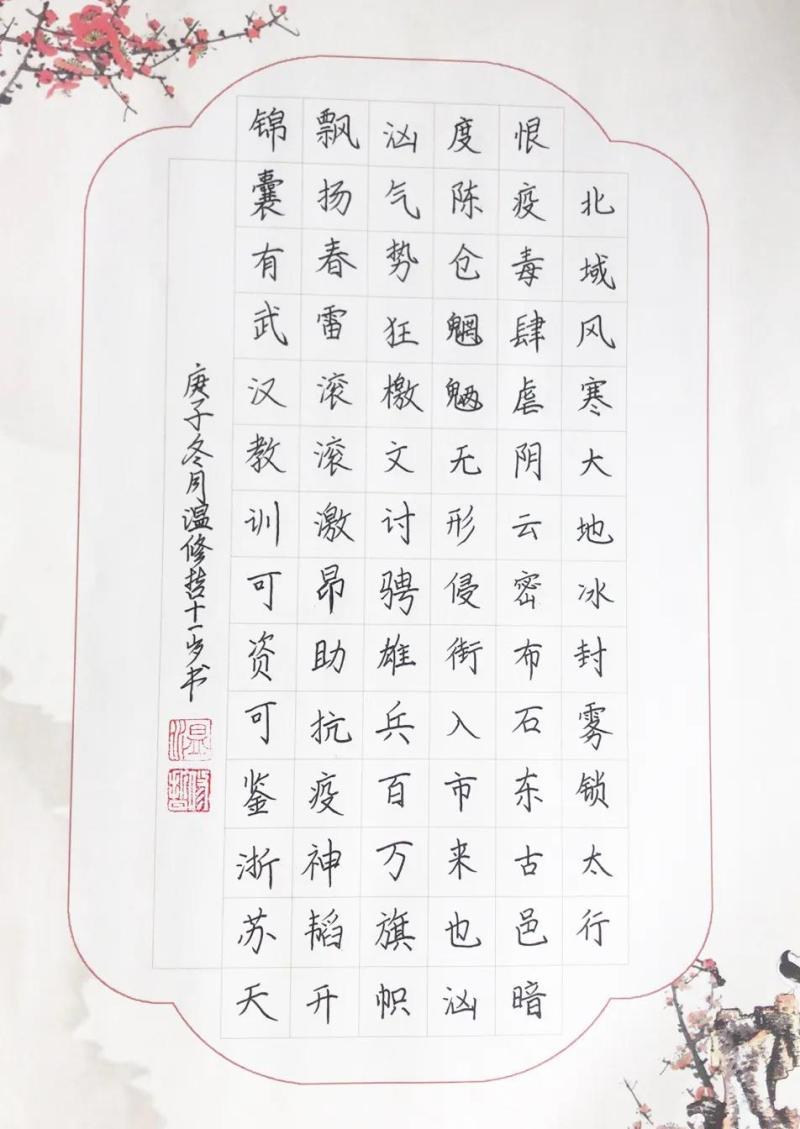 北域风寒大地冰封雾锁太行
恨疫毒肆虐阴云密布石东古邑暗
度陈仓魍魉无形侵街入市来也汹
汹气势狂檄文讨骋雄兵百万旗帜
飘扬春雷滚滚激昂助抗疫神韬开
锦囊有武汉教训可资可鉴浙苏天
庚子冬月温修哲十一岁书
温
修哲